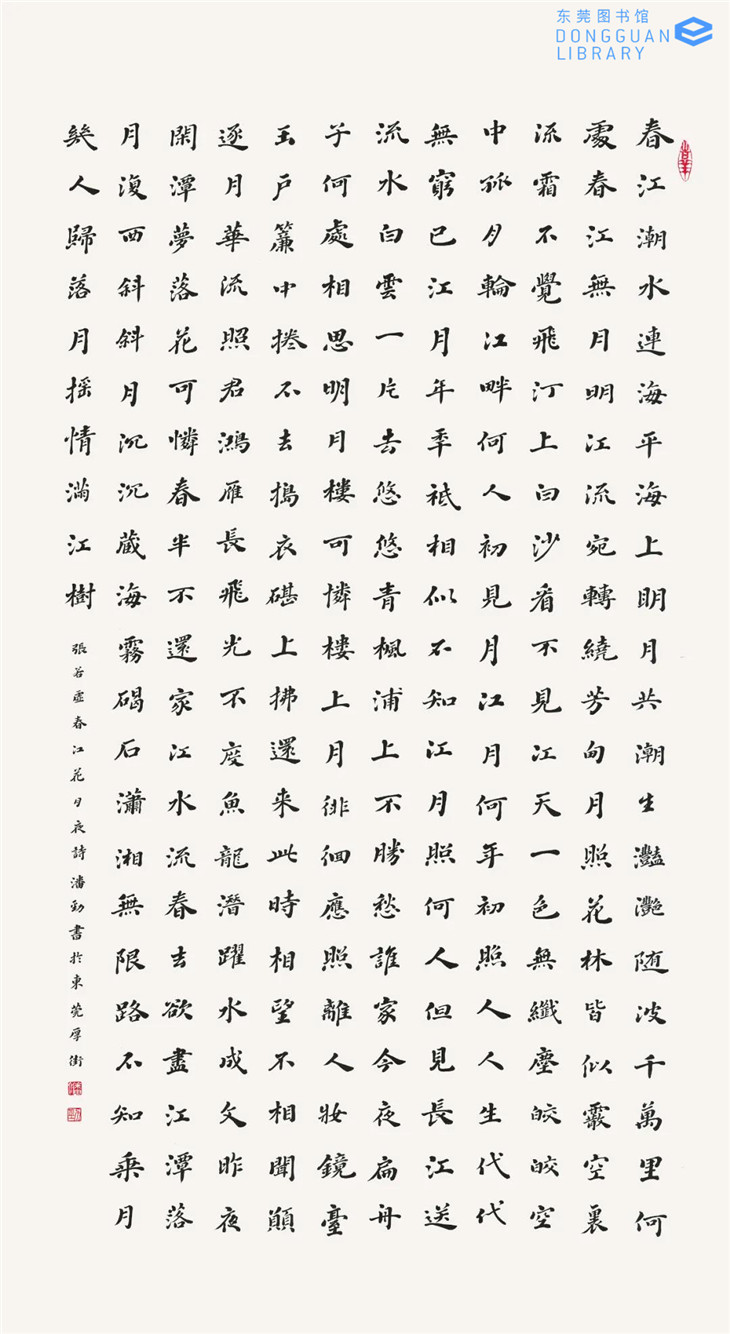 东莞图书馆
DONGGUAN
LIBRARY
春江潮水連海平海上明月共潮生灩灩随波千萬里何
處春江無月明江流宛轉繞芳甸月照花林皆似霰空裏
流霜不覺飛汀上白沙看不見江天一色無纖塵皎皎空
中孤月輪江畔何人初見月江月何年初照人人生代代
無窮已江月年年祗相似不知江月照何人但見長江送
流水白雲一片去悠悠青楓浦上不勝愁誰家今夜扁舟
子何處相思明月樓可憐樓上月徘徊應照離人妝鏡臺
玉戶簾中捲不去搗衣碪上拂還来此時相望不相聞願
逐月華流照君鴻雁長飛光不度魚龍潛躍水成文昨夜
閑潭夢落花可憐春半不還家江水流春去欲盡江潭落
月復西斜斜月沉沉藏海霧碣石瀟湘無限路不知乘月
幾人歸落月摇情滿江樹
張若虛春江花月夜詩潘劲書於東莞厚街